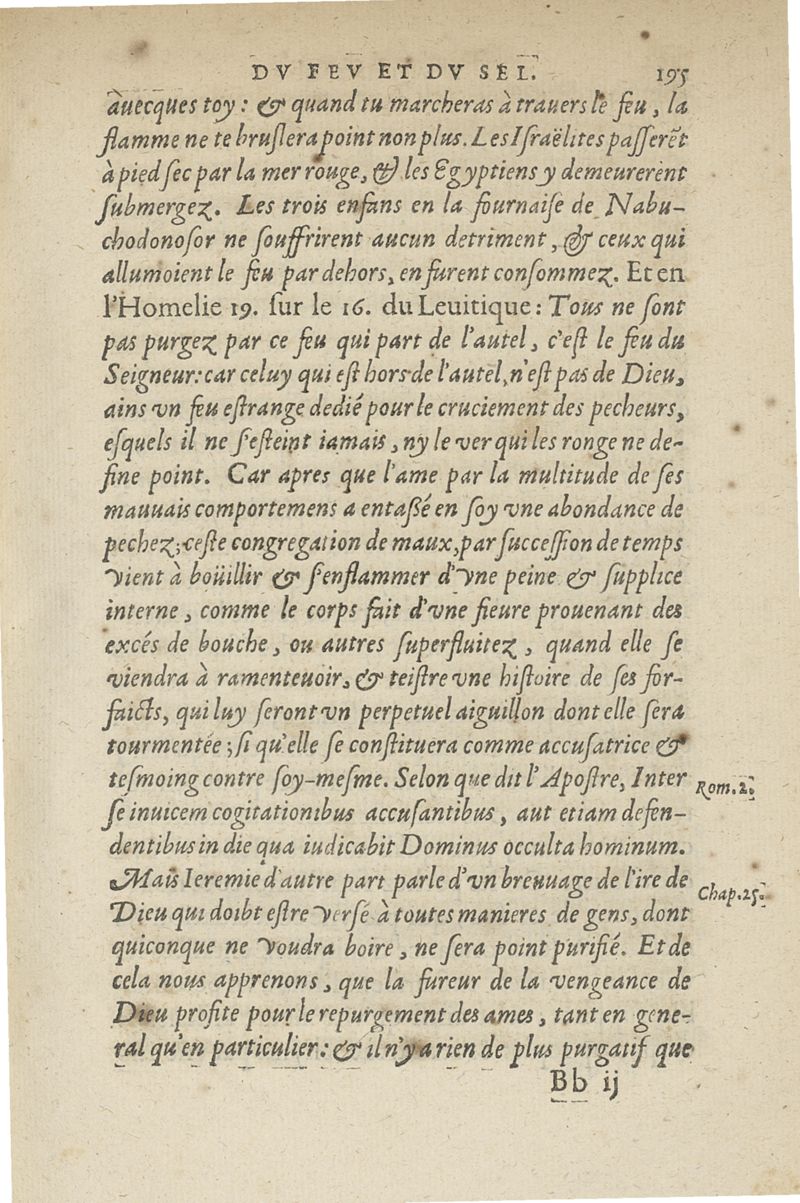 DV FEV ET DV SEL. 195
àuecques toy : & quand tu marcheras à trauers le feu, la
flamme ne te bruſlera point non plus. Les Iſraëlites paſſerẽt
à pied ſec par la mer rouge, & les Egyptiens y demeurerent
ſubmergez. Les trois enfans en la fournaiſe de Nabu-
chodonoſor ne ſouffrirent aucun detriment, & ceux qui
allumoient le feu par dehors, en furent conſommez. Et en
l'Homelie 19. ſur le 16. du Leuitique : Tous ne ſont
pas purgez par ce feu qui part de l'autel, c'eſt le feu du
Seigneur: car celuy qui eſt hors de l'autel, n'eſt pas de Dieu,
ains vn feu eſtrange dedié pour le cruciement des pecheurs,
eſquels il ne ſ'eſteint iamais, ny le ver qui les ronge ne de-
fine point. Car apres que l'ame par la multitude de ſes
mauuais comportemens a entaßé en ſoy vne abondance de
pechez; ceſte congregation de maux, par ſucceſſion de temps
vient à boüillir & ſ'enflammer d'vne peine & ſupplice
interne, comme le corps fait d'vne fieure prouenant des
excés de bouche, ou autres ſuperfluitez, quand elle ſe
viendra à ramenteuoir, & teiſtre vne hiſtoire de ſes for-
faicts, qui luy ſeront vn perpetuel aiguillon dont elle ſera
tourmentée; ſi qu'elle ſe conſtituera comme accuſatrice &
teſmoing contre ſoy-meſme. Selon que dit l'Apoſtre, Inter
Rom. 2.
ſe inuicem cogitationibus accuſantibus, aut etiam defen-
dentibus in die qua iudicabit Dominus occulta hominum.
Mais Ieremie d'autre part parle d'vn breuuage de l'ire de
Chap. 25.
Dieu qui doibt eſtre verſé à toutes manieres de gens, dont
quiconque ne voudra boire, ne ſera point purifié. Et de
cela nous apprenons, que la fureur de la vengeance de
Dieu profite pour le repurgement des ames, tant en gene-
ral qu'en particulier : & il n'y a rien de plus purgatif que
Bb ij